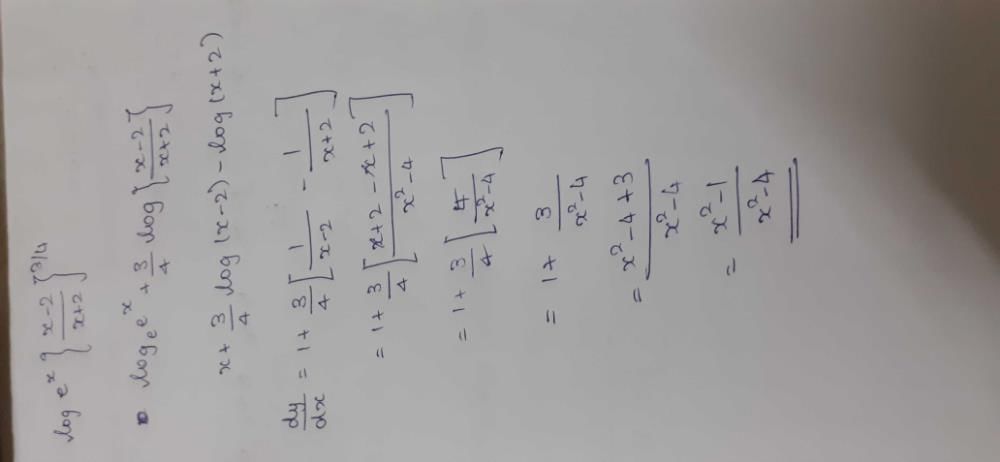 log e^x {x-2/x+2}^3/4
log_e e^x + 3/4 log {x-2/x+2}
x + 3/4 log (x-2) - log (x+2)
dy/dx = 1 + 3/4 [1/x-2 - 1/x+2]
= 1 + 3/4 [x+2-x+2/x²-4]
= 1 + 3/4 [4/x²-4]
= 1 + 3/x²-4
= x²-4+3/x²-4
= x²-1/x²-4